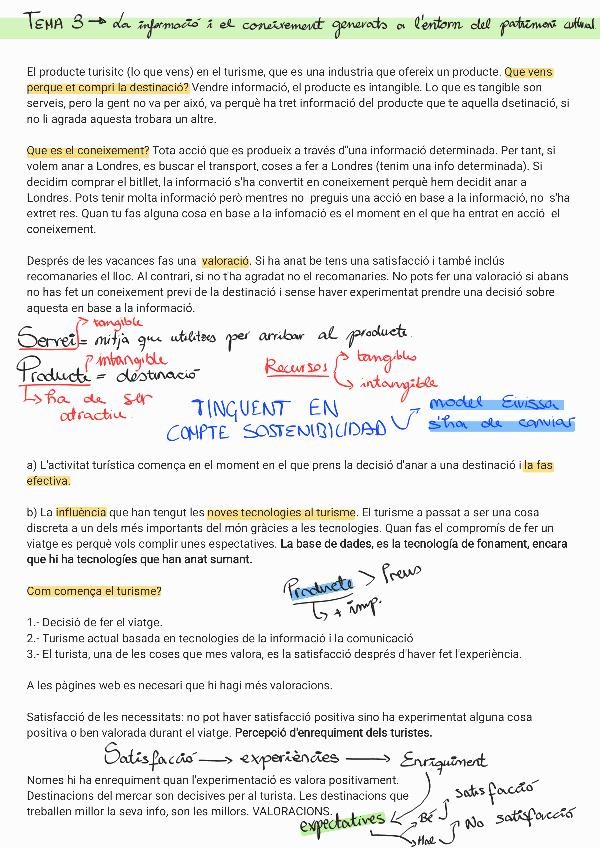 TEMA 3 → La informació i el coneixement generats a l'entorn del patrimoni cultural
El producte turisitc (lo que vens) en el turisme, que es una industria que ofereix un producte. Que vens
perque et compri la destinació? Vendre informació, el producte es intangible. Lo que es tangible son
serveis, pero la gent no va per aixó, va perquè ha tret informació del producte que te aquella dsetinació, si
no li agrada aquesta trobara un altre.
Que es el coneixement? Tota acció que es produeix a través d"una informació determinada. Per tant, si
volem anar a Londres, es buscar el transport, coses a fer a Londres (tenim una info determinada). Si
decidim comprar el bitllet, la informació s'ha convertit en coneixement perquè hem decidit anar a
Londres. Pots tenir molta informació però mentres no preguis una acció en base a la informació, no s'ha
extret res. Quan tu fas alguna cosa en base a la infomació es el moment en el que ha entrat en acció el
coneixement.
Després de les vacances fas una valoració. Si ha anat be tens una satisfacció i també inclús
recomanaries el lloc. Al contrari, si no t'ha agradat no el recomanaries. No pots fer una valoració si abans
no has fet un coneixement previ de la destinació i sense haver experimentat prendre una decisió sobre
aquesta en base a la informació.
→ tangible
Servei = mitja que utilitzes per arribar al producte.
→ intangible
Producte = destinació
Recursos → tangibles
→ intangible
→ ha de ser
atractiu
TINGUENT EN
COMPTE SOSTENIBILIDAD
model Eivissa
s'ha de canviar
a) L'activitat turística comença en el moment en el que prens la decisió d'anar a una destinació i la fas
efectiva.
b) La influència que han tengut les noves tecnologies al turisme. El turisme a passat a ser una cosa
discreta a un dels més importants del món gràcies a les tecnologies. Quan fas el compromís de fer un
viatge es perquè vols complir unes espectatives. La base de dades, es la tecnología de fonament, encara
que hi ha tecnologíes que han anat sumant.
Producte > Preus
→ + imp.
Com comença el turisme?
1.- Decisió de fer el viatge.
2.- Turisme actual basada en tecnologies de la informació i la comunicació
3.- El turista, una de les coses que mes valora, es la satisfacció després d'haver fet l'experiència.
A les pàgines web es necesari que hi hagi més valoracions.
Satisfacció de les necessitats: no pot haver satisfacció positiva sino ha experimentat alguna cosa
positiva o ben valorada durant el viatge. Percepció d'enrequiment dels turistes.
Satisfacció → experiències → Enriquiment
Nomes hi ha enrequiment quan l'experimentació es valora positivament.
Destinacions del mercar son decisives per al turista. Les destinacions que
treballen millor la seva info, son les millors. VALORACIONS.
expectatives
Bé → satisfacció
Mal → No satisfacció